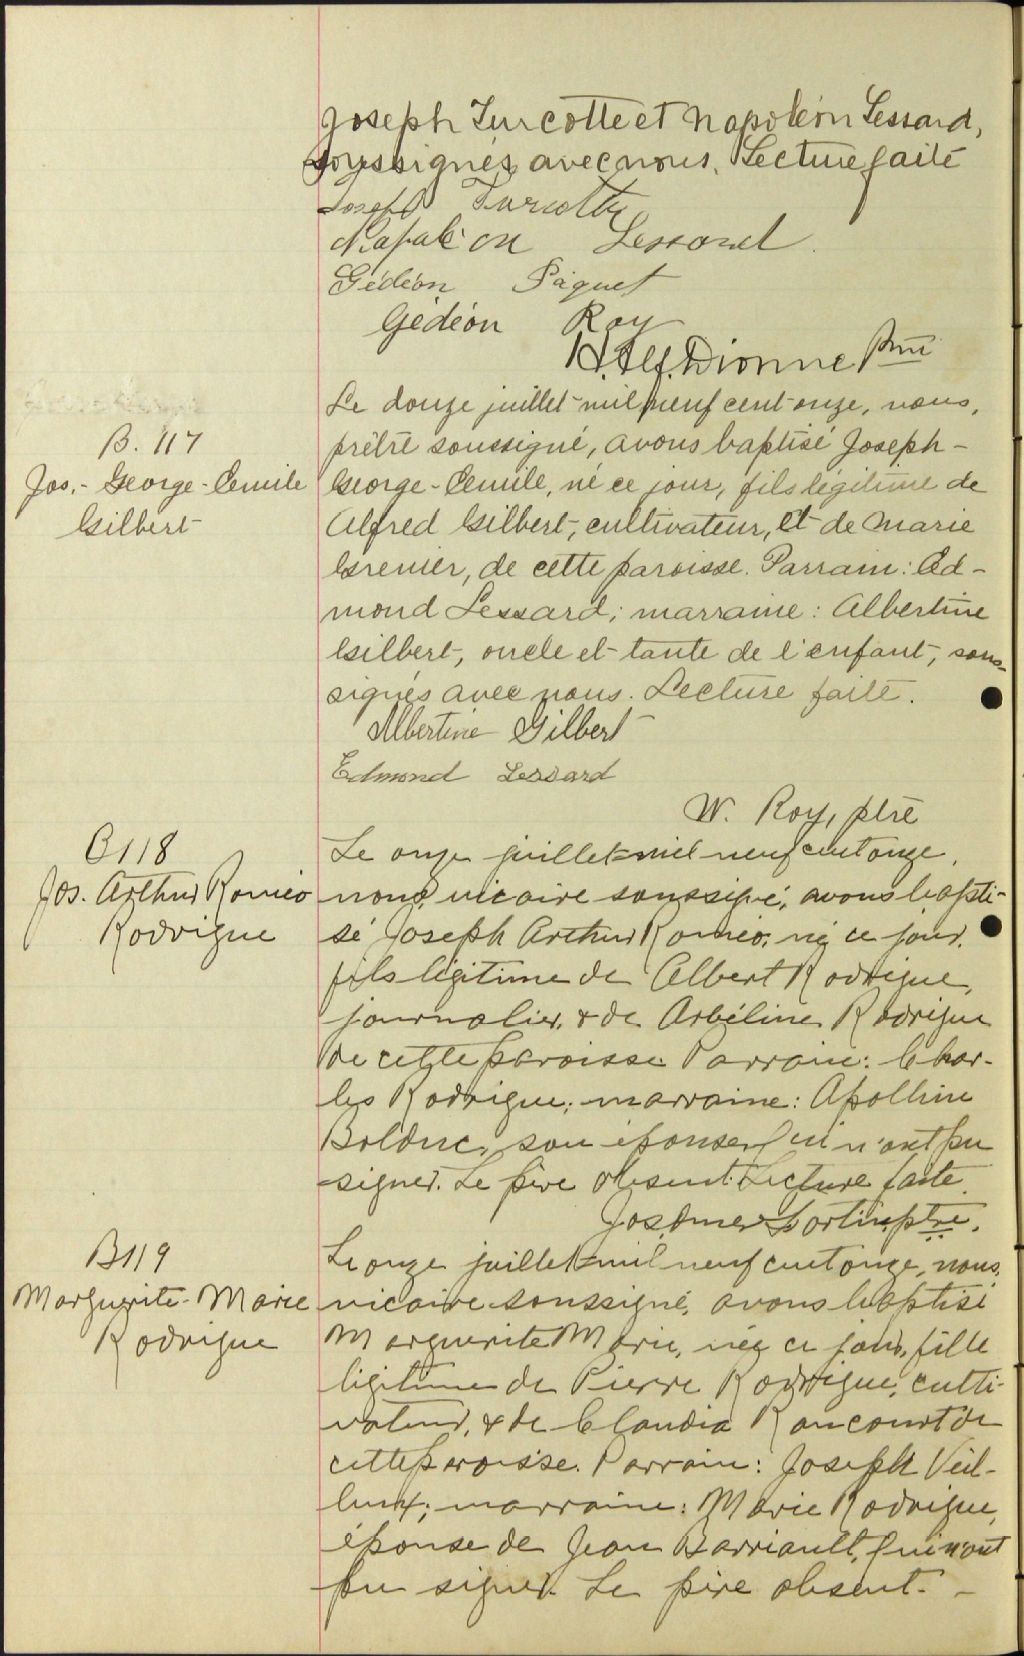 Joseph Turcotte et Napoléon Lessard,
soussignés avec nous. Lecture faite
Joseph Turcotte
Napoléon Lessard.
Gédéon Paquet
Gédéon Roy
H. Alf. Dionne Ptre
B. 117
Jos.- George-Cemile
Gilbert
Le douze juillet mil neuf cent onze, nous,
prêtre soussigné, avons baptisé Joseph-
George-Cemile, né ce jour, fils légitime de
Alfred Gilbert, cultivateur, et de Marie
Grenier, de cette paroisse. Parrain: Ed-
mond Lessard; marraine: Albertine
Gilbert, oncle et tante de l'enfant, sous-
signés avec nous. Lecture faite.
Albertine Gilbert
Edmond Lessard
W. Roy, ptre
B118
Jos. Arthur Roméo
Rodrigue
Le onze juillet mil neuf cent onze,
nous, vicaire soussigné, avons bapti-
sé Joseph Arthur Roméo, né ce jour,
fils légitime de Albert Rodrigue,
journalier, & de Arbéline Rodrigue
de cette paroisse. Parrain: Char-
les Rodrigue; marraine: Apolline
Bolduc, son épouse, qui n'ont pu
signer. Le père absent. Lecture faite
Jos. Omer Fortin, ptre.
B119
Marguerite-Marie
Rodrigue
Le onze juillet mil neuf cent onze, nous,
vicaire soussigné, avons baptisé
Marguerite Marie, née ce jour, fille
légitime de Pierre Rodrigue, culti-
vateur, & de Claudia Rancourt de
cette paroisse. Parrain: Joseph Veil-
leux; marraine: Marie Rodrigue,
épouse de Jean Barriault, qui n'ont
pu signer. Le père absent. -